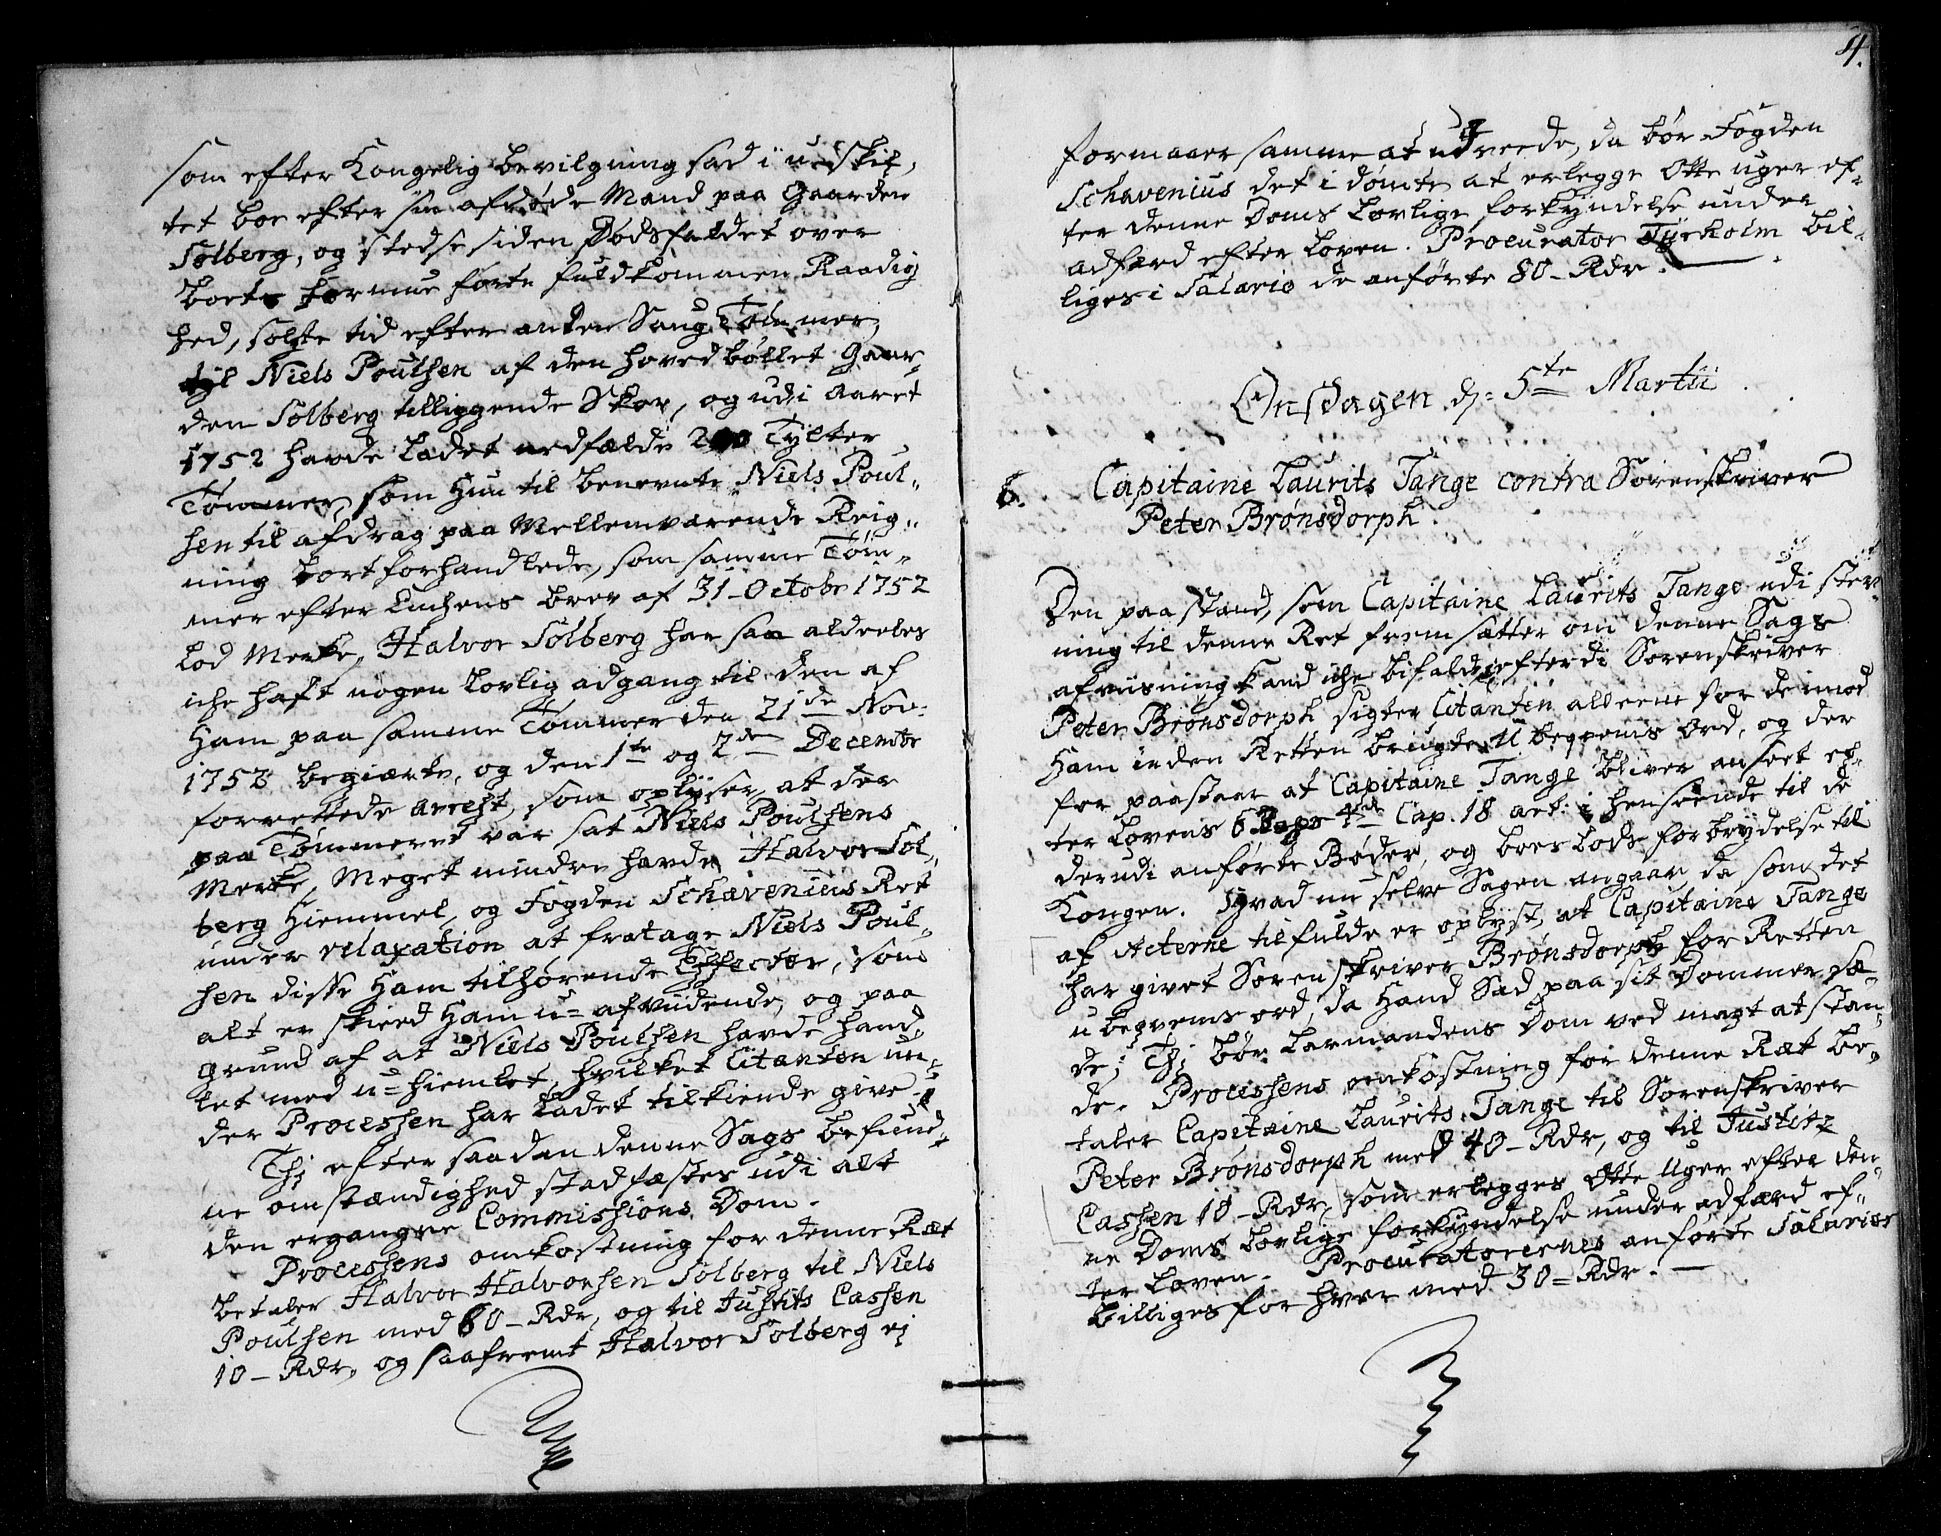 som efter Kongelig bevilgning sad i u-skif,
tet boe efter sin afdøde Mand paa Gaarden
Solberg, og stedse siden Dødsfaldet over
boets formue førte fuldkommen Raadig
hed, solgte tid efter anden Saug Tømmer,
til Niels Poulsen af den hoved bøllet Gaar„
den Solberg tilliggende Skov, og udi Aaret
1752 havde ladet nedfælde 200 Tylter
Tømmer, som Hun til benevnte Niels Poul„
sen til afdrag paa Mellemværende Reig„
ning bortforhandlede, som samme Tøm„
mer efter Enchens brev af 31-Octobr 1752
lod Merke, Halvor Solberg har saa aldeeles
iche haft nogen lovlig adgang til den af
Ham paa samme Tømmer den 21de Nov:
1752 begiærte, og den 1te og 2den Decembr
forrettede Arrest, som oplyser, at der
paa Tømmeret var sat Niels Poulsens
Merke, Meget mindre havde Halvor Sol„
berg Hiemmel, og Fogden Schavenius Ret
under relaxation at fratage Niels Poul„
sen disse Ham tilhørende Effecter, som
alt er skieed Ham u=afvidende, og paa
grund af at Niels Poulsen havde hand„
let med u=hiemlet, hvilket Citanten un„
der Processen har ladet tilkiende give.
Thj efter saadan denne Sags befund„
ne omstændighed stadfæstes udi alt
den ergangne Commissions Dom.
Processens omkostning for denne Ræt
betaler Halvor Halvorsen Solberg til Niels
Poulsen med 60-Rdr, og til Justits Cassen
10-Rdr, og saafremt Halvor Solberg ej
4.
formaaer samme at udreede, da bør Fogden
Schavenius det i dømte at erlegge Otte uger ef„
ter denne Doms lovlige forkyndelse under
adfærd efter loven. Procurator Tyrholm bil„
liges i Salario de anførte 80-Rdr.
Onsdagen d: 5te Martii
6. Capitaine Laurits Tange contra Sorenskriver
Peter Brønsdorph.
Den paastand, som Capitaine Laurits Tange udi stev„
ning til denne Ret frem sætter om denne Sags
afviisning kand iche bifaldes, efterdi Sorenskriver
Peter Brønsdorph sigter Citanten alleene for de imod
Ham inden Retten brugte u beqvems Ord, og der
for paastaar at Capitaine Tange bliver anseet ef„
ter lovens 6 Bogs 4de Cap. 18 art: i henseende til de
derudi anførte Bøder, og boes lods forbrydelse til
Kongen. Hvad nu selve Sagen angaar da som det
af Acterne tilfulde er oplyst, at Capitaine Tange
har givet Sorenskriver Brønsdorph for Retten
u beqvems ord, da Hand Sad paa sit Dommer sæ„
de; Thj bør Lavmandens Dom ved magt at stan„
de. Processens omkostning for denne Ræt be„
taler Capitaine Laurits Tange til Sorenskriver
Peter Brønsdorph med 40-Rdr, og til Justitz
Cassen 10-Rdr, som erlegges Otte Uger efter den„
ne Doms lovlige forkyndelse under adfærd ef„
ter loven. Procuratorernes anførte Salarier
billiges for hver med 30=Rdr.